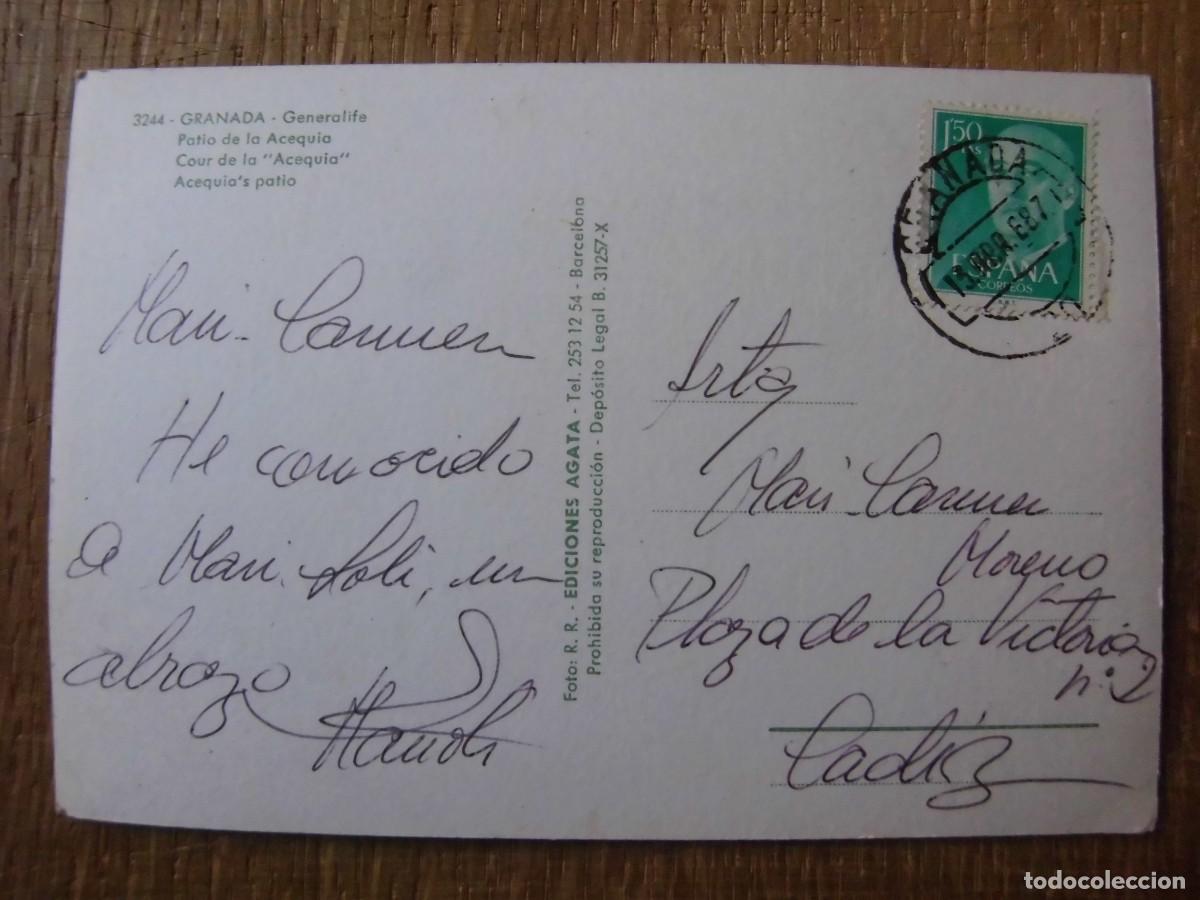 3244 - GRANADA - Generalife
Patio de la Acequia
Cour de la "Acequia"
Acequia's patio
Mari-Carmen
He conocido
a Mari-Loli, un
abrazo
Manoli
Foto: R. R. - EDICIONES AGATA - Tel. 253 12 54 - Barcelona
Prohibida su reproducción - Depósito Legal B. 31257-X
1'50
ESPAÑA
CORREOS
GRANADA
Srta
Mari-Carmen
Moreno
Plaza de la Victoria
nº 2
Cadiz
todocoleccion